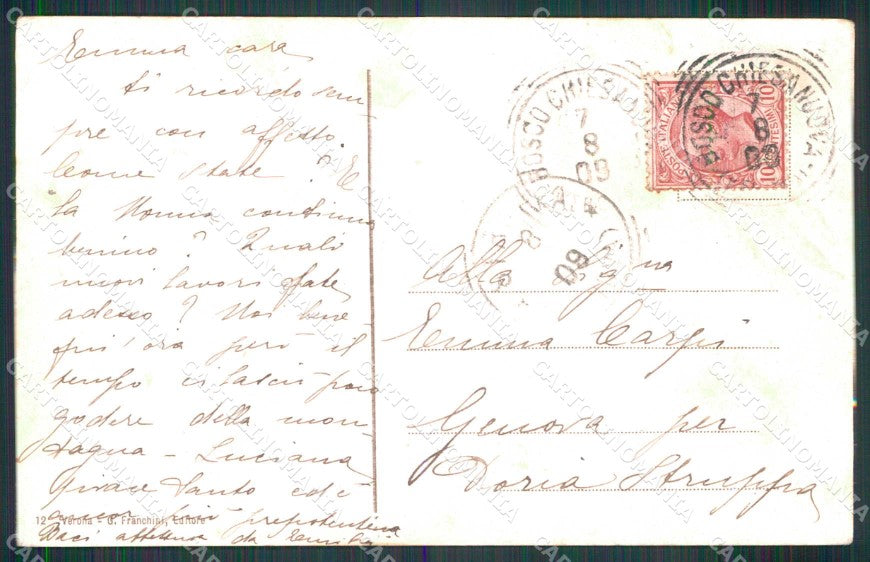 Emma cara
ti ricordo sem
pre con affetto
Come state? E
la Nonna continua
benino? Quali
nuovi lavori fate
adesso? Noi bene
qui, ora però il
tempo ci lascia poco
godere della mon
tagna - Luciana
piace tanto ed è
ancor più prepotentina
Baci affettuosi da Emilia
12 Verona - G. Franchini, Editore
BOSCO CHIESANUOVA
7
8
09
BOSCO CHIESANUOVA
7
8
09
8
09
POSTE ITALIANE
10
10
Alla Signa
Emma Carpi
Genova per
Doria Struppa
CARTOLINOMANIA